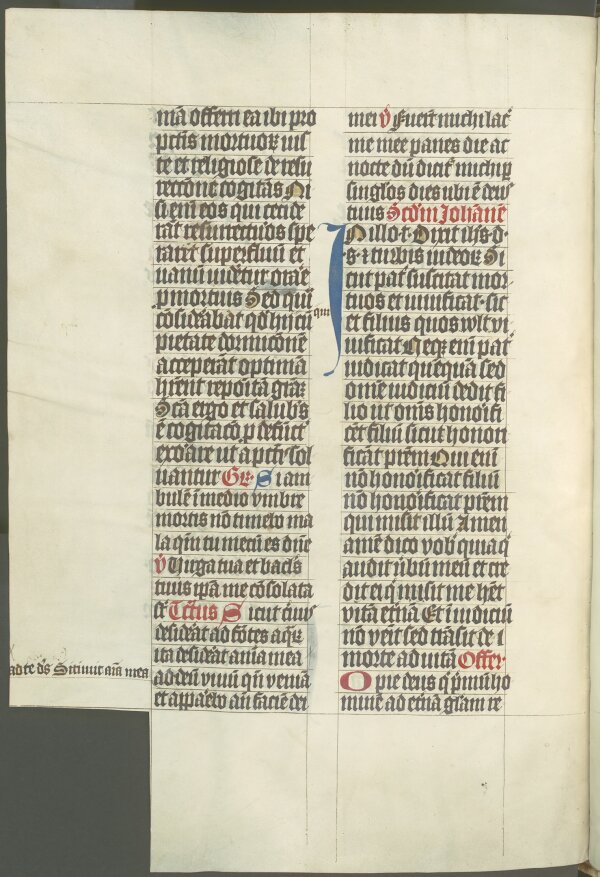 mā offerri ea ibi pro
pctīs mortuoꝝ iuſ
te et religioſe de reſu
rectione cogitās Ni
ſi eni eos qui cecide
rāt reſurrecturos ſpe
raret ſuperfluū et
uanū uidetur orare
p mortuis Sed quia
cōſiderabat qd hij cū
pietate dormicione
acceperāt optimā
hrent repoſitā grāz
Scā ergo et ſalubs
ē cogitacō p defūct
exorare ut a pctīs ſol
uantur Gr. Si am
bulē ī medio vmbre
mortis nō timebo ma
la qm tu mecū es dne
v̄ Virga tua et baculs
tuus ipa me cōſolata
ſt Tctus Sicut ceruꝰ
deſiderat ad fōtes aqꝝ
ita deſiderāt anima mea
ad te ds Sitiuit aīa mea
ad deū viuū qn veniā
et apparebo añ faciē dei
mei v̄ Fuerūt michi lac
me mee panes die ac
nocte dū dicitˀ michi p
ſinglos dies ubi ē deus
tuus Scdm Johanē
In illo t. Dixit ihs d.
s. et turbis iudeoꝝ Si
cut pat ſuſcitat mor
tuos et uiuificat ſic
qui
et filius quos wlt vi
uificat Neqꝫ eni pat
iudicat quequā ſed
omē iudiciū dedit fi
lio ut oms honorifi
cēt filiū ſicut honori
ficāt prēm Qui eni
nō honorificat filiū
nō honorificat prēm
qui miſit illū Amen
amē dico vob quia q
audit ūbū meū et cre
dit ei q miſit me het
vitā eternā Et ī iudiciū
nō venit ſed trāſit de
morte ad uitā Offer
O pie deus q pmū ho
minē ad eternā gloriam re